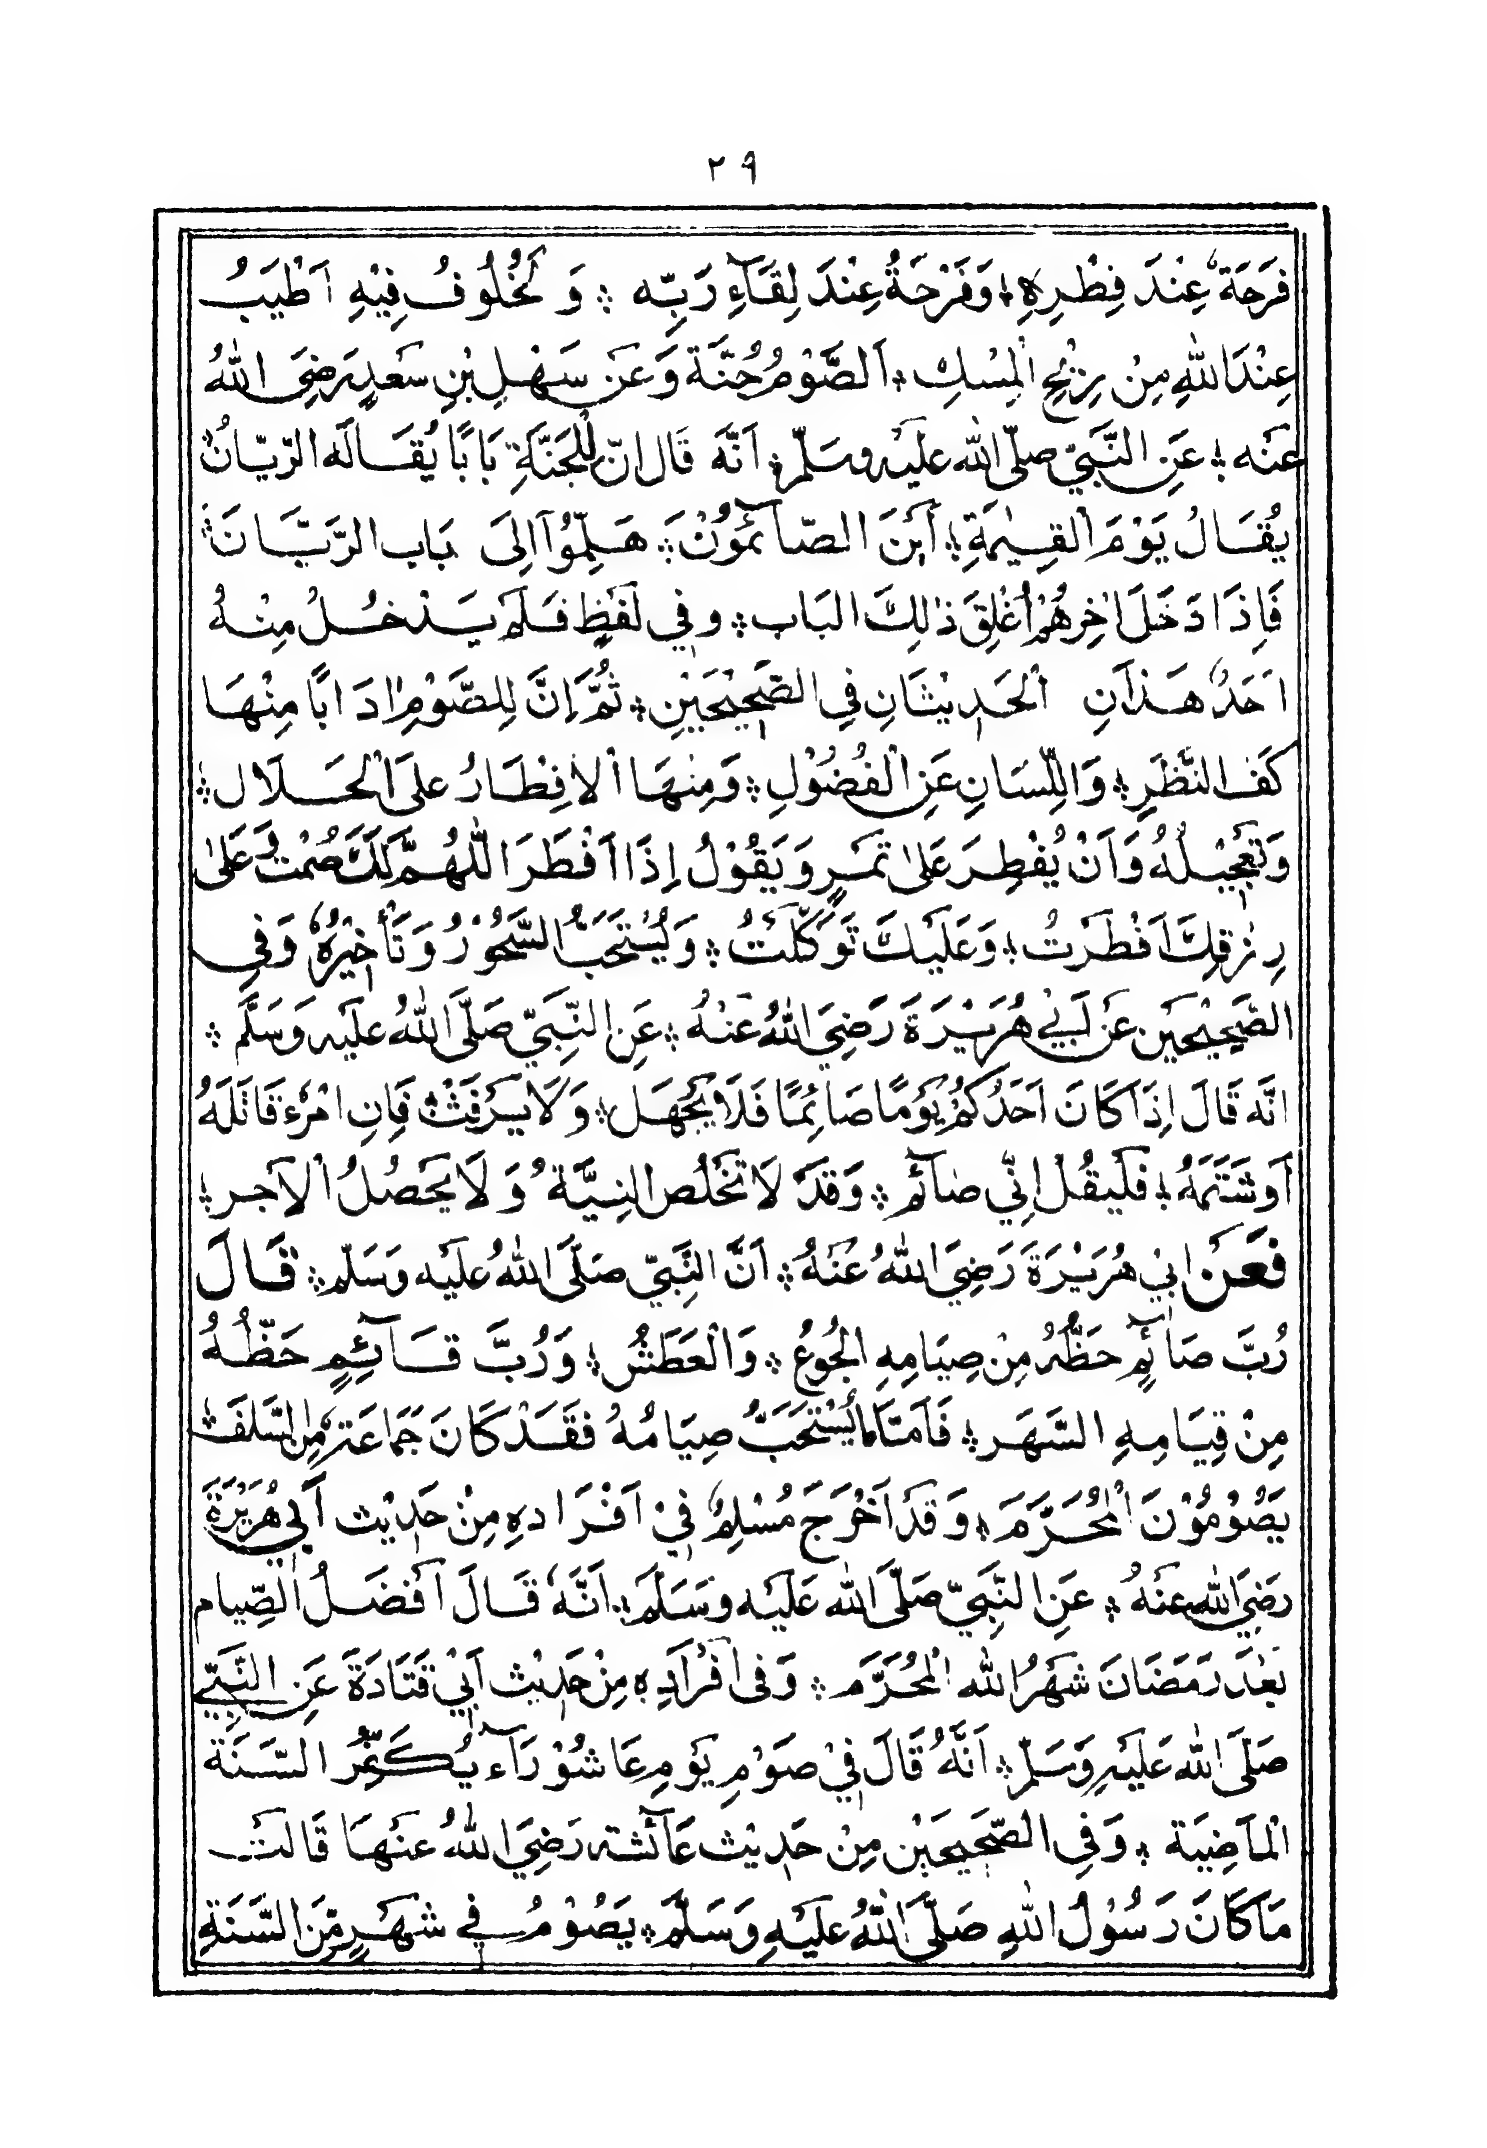 ٢٩
فَرَحَةٌ عِنْدَ فِطْرِهِ ؞ وَفَرْحَةٌ عِنْدَ لِقَآءِ رَبِّه ؞ وَ لَخُلُوفُ فِيْهِ اَطْيَبُ
عِنْدَ اللهِ مِنْ رِيْحِ الْمِسْكِ ؞ اَلصَّوْمُ جُنَّة وَعَن سَهْلِ بْنِ سَعْدٍ رَضِيَ اللهُ
عَنْه ؞ عَنِ النَّبِيِّ صلّى الله عليه وسلّم ؞ اَنَّه قَال اِنّ لِلْجَنَّةِ بَابًا يُقَالُ لَه الرّيّانُ
يُقَالُ يَوْمَ الْقِيٰمَةِ ؞ أَيْنَ الصّآئمُوْنَ ؞ هَلِمّوُآ اِلىَ بَاب الرَّيَّانَ ؞
فَاِذَا دَخَلَ اٰخِرهُمْ اُغْلِقَ ذٰلِكَ البَاب ؞ وفي لَفْظٍ فَلَمْ يَدْخُلُ مِنْهُ
اَحَدٌ هَذَانِ الْحَدِيْثَانِ فِي الصَّحِيْحَيْنِ ؞ ثُمَّ اِنَّ لِلصَّوْمِ اٰدَابًا مِنْهَا
كَفّ النَّظَرِ ؞ وَاللِّسَانِ عَنِ الْفُضُوْلِ ؞ وَمِنْهَا الْاِفِطَارُ علىَ الْحَلَال ؞
وَتَعْجِيْلُهُ وَاَنْ يُفْطِرَ عَلىٰ تَمْرٍ وَيَقُوْلُ اِذَا اَفْطَرَ اَللّٰهُمَّ لَكَ صُمْتُ وَعَلىٰ
رِزْقِكَ اَفْطَرْتُ ؞ وَعَلَيْكَ تَوَكّلْتُ ؞ وَيُسْتَحَبُّ السَّحُوْرُ وَتَأْخِيْرُهُ وَفيِ
الصَّحِيْحَيْن عَنْ اَبيْ هُرَيْرَةَ رَضِيَ اللهُ عَنْهُ ؞ عَنِ النَّبِيّ صَلَّى اللهُ عليْه وَسَلَّم ؞
انَّه قَالَ اِذَا كَانَ اَحَدُكُمْ يَوْمًا صَائِمًا فَلَا يَجْهَل ؞ وَلَا يَرْفَثْ فَاِنِ امْرُءٌ قَاتَلَهُ
اَوشَتَمَهُ ؞ فَلْيقُلْ اِنّي صَآئم ؞ وَقَدْ لَا تَخْلُص النِيَّةُ وَلَا يَحْصُلُ الْاَجر ؞
فَعَنْ ابيْ هُرَيْرَةَ رَضِيَ اللهُ عَنْهُ ؞ اَنَّ النَّبِيّ صَلَّى اللهُ عليْه وَسَلّم ؞ قَالَ
رُبَّ صَائِمٍ حَظُّهُ مِنْ صِيَامِهِ الجُوعُ ؞ وَالْعَطَشُ ؞ وَرُبَّ قَآئِمٍ حَظّهُ
مِنْ قِيَامِهِ السَّهَر ؞ فَاَمّا مَا يُسْتَحَبُّ صِيَامُهُ فَقَدْ كَانَ جَمَاعَة مِنَ السَّلَف
يَصُوْمُوْنَ الْمُحَرَّمَ ؞ وَقَدْ اَخْرَجَ مُسْلِمٌ فِيْ اَفْرَادِهِ مِنْ حَدِيْث اَبي هُرَيْرَةَ
رَضِيَ اللهُ عَنْهُ ؞ عَنِ النَّبِيّ صَلَّى اللهُ عَلَيْه وَسَلَّمَ ؞ اَنَّهٗ قَالَ اَفْضَلُ الصِّيام
بَعْدَ رَمَضَانَ شَهْرُ الله الْمُحَرَّم ؞ وَفي اَفْرَادِه مِنْ حَدِيْث اَبيْ قَتَادَةَ عَنِ النَّبِيّ
صَلَّى الله عَلَيْهِ وَسَلّمَ ؞ اَنَّهُ قَالَ فيْ صَوْمِ يَوْمِ عَاشُوْرَآءَ يُكَفِّرُ السَّنَةَ
الْمَاضِيَة ؞ وَفيِ الصَّحَيحَيْن مِنْ حَدِيْث عَآئشَه رَضِيَ اللهُ عَنْهَا قَالَتْ
مَا كَانَ رَسُوْلُ اللهِ صَلَّى اللهُ عَلَيْهِ وَسَلَّمَ ؞ يَصُوْمُ في شَهْرٍ مِّنَ السَّنَةِ